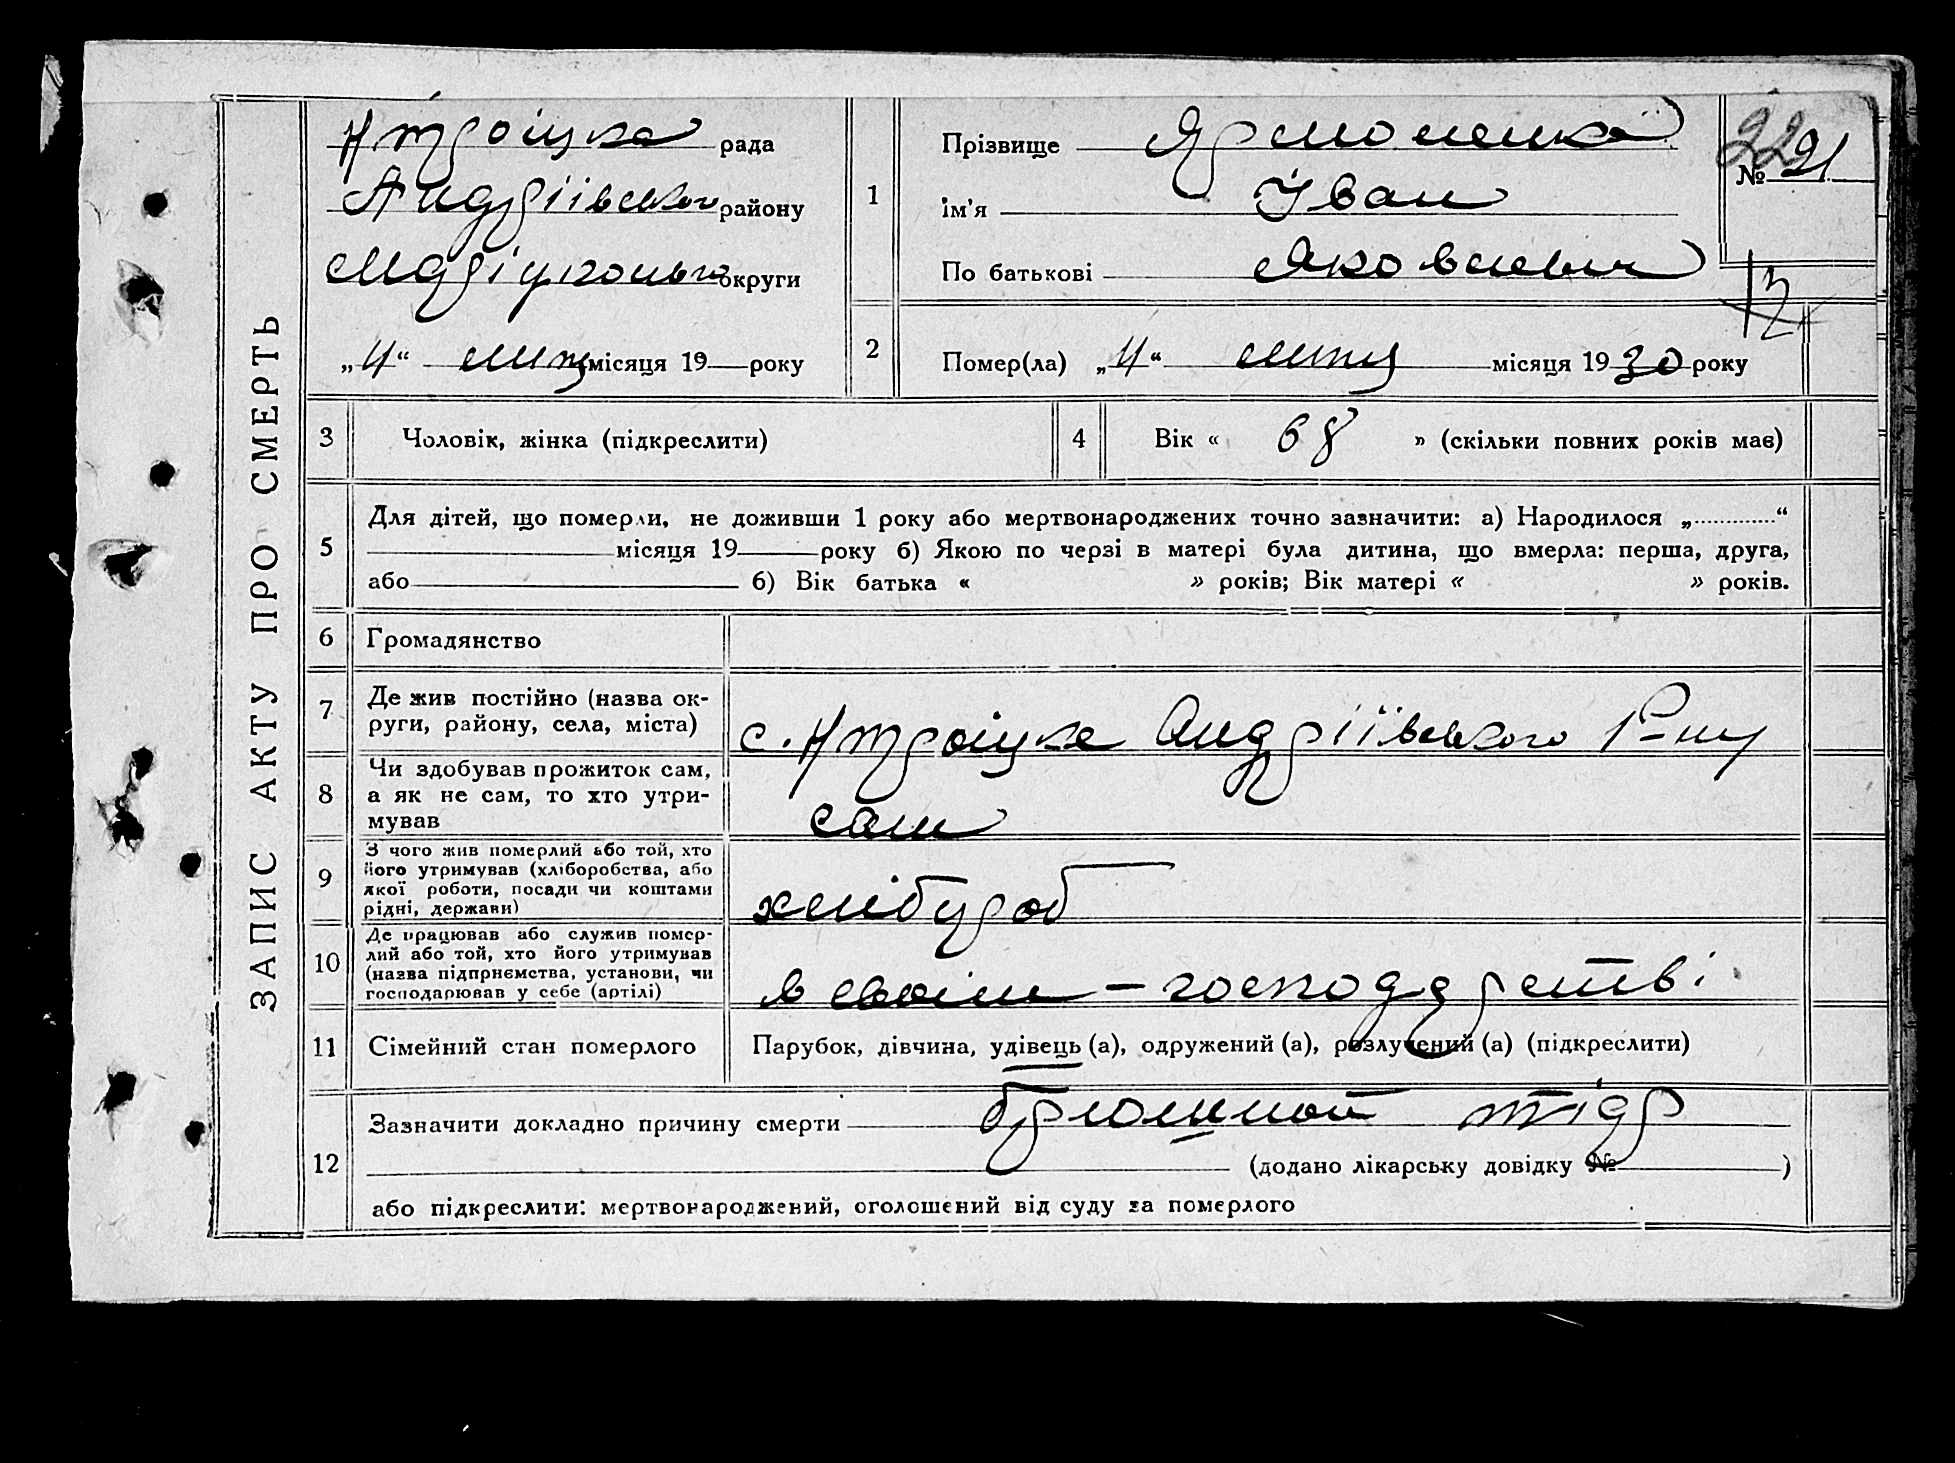 ЗАПИС АКТУ ПРО СМЕРТЬ
Нтроіцка рада
Андріївського району
Маріупольсько округи
„4“ липц місяця 19 року
1
Прізвище Ярмоленко
ім'я Іван
По батькові Яковлевич
22
№ 21
2
Помер(ла) „4“ липц місяця 1930 року
3 Чоловік, жінка (підкреслити)
4 Вік « 68 » (скільки повних років має)
5 Для дітей, що померли, не доживши 1 року або мертвонароджених точно зазначити: а) Народилося „ “
місяця 19 року б) Якою по черзі в матері була дитина, що вмерла: перша, друга,
або б) Вік батька « » років; Вік матері « » років.
6 Громадянство
7 Де жив постійно (назва ок-
руги, району, села, міста)
с. Нтроіцке Андріївського Р-ну
8 Чи здобував прожиток сам,
а як не сам, то хто утри-
мував
сам
9 З чого жив померлий або той, хто
його утримував (хліборобства, або
якої роботи, посади чи коштами
рідні, держави)
хлібуроб
10 Де працював або служив помер-
лий або той, хто його утримував
(назва підприємства, установи, чи
господарював у себе (артілі)
в своїм – господарстві
11 Сімейний стан померлого
Парубок, дівчина, удівець (а), одружений (а), розлучений (а) (підкреслити)
12 Зазначити докладно причину смерти брюшной тіф
(додано лікарську довідку № )
або підкреслити: мертвонароджений, оголошений від суду за померлого